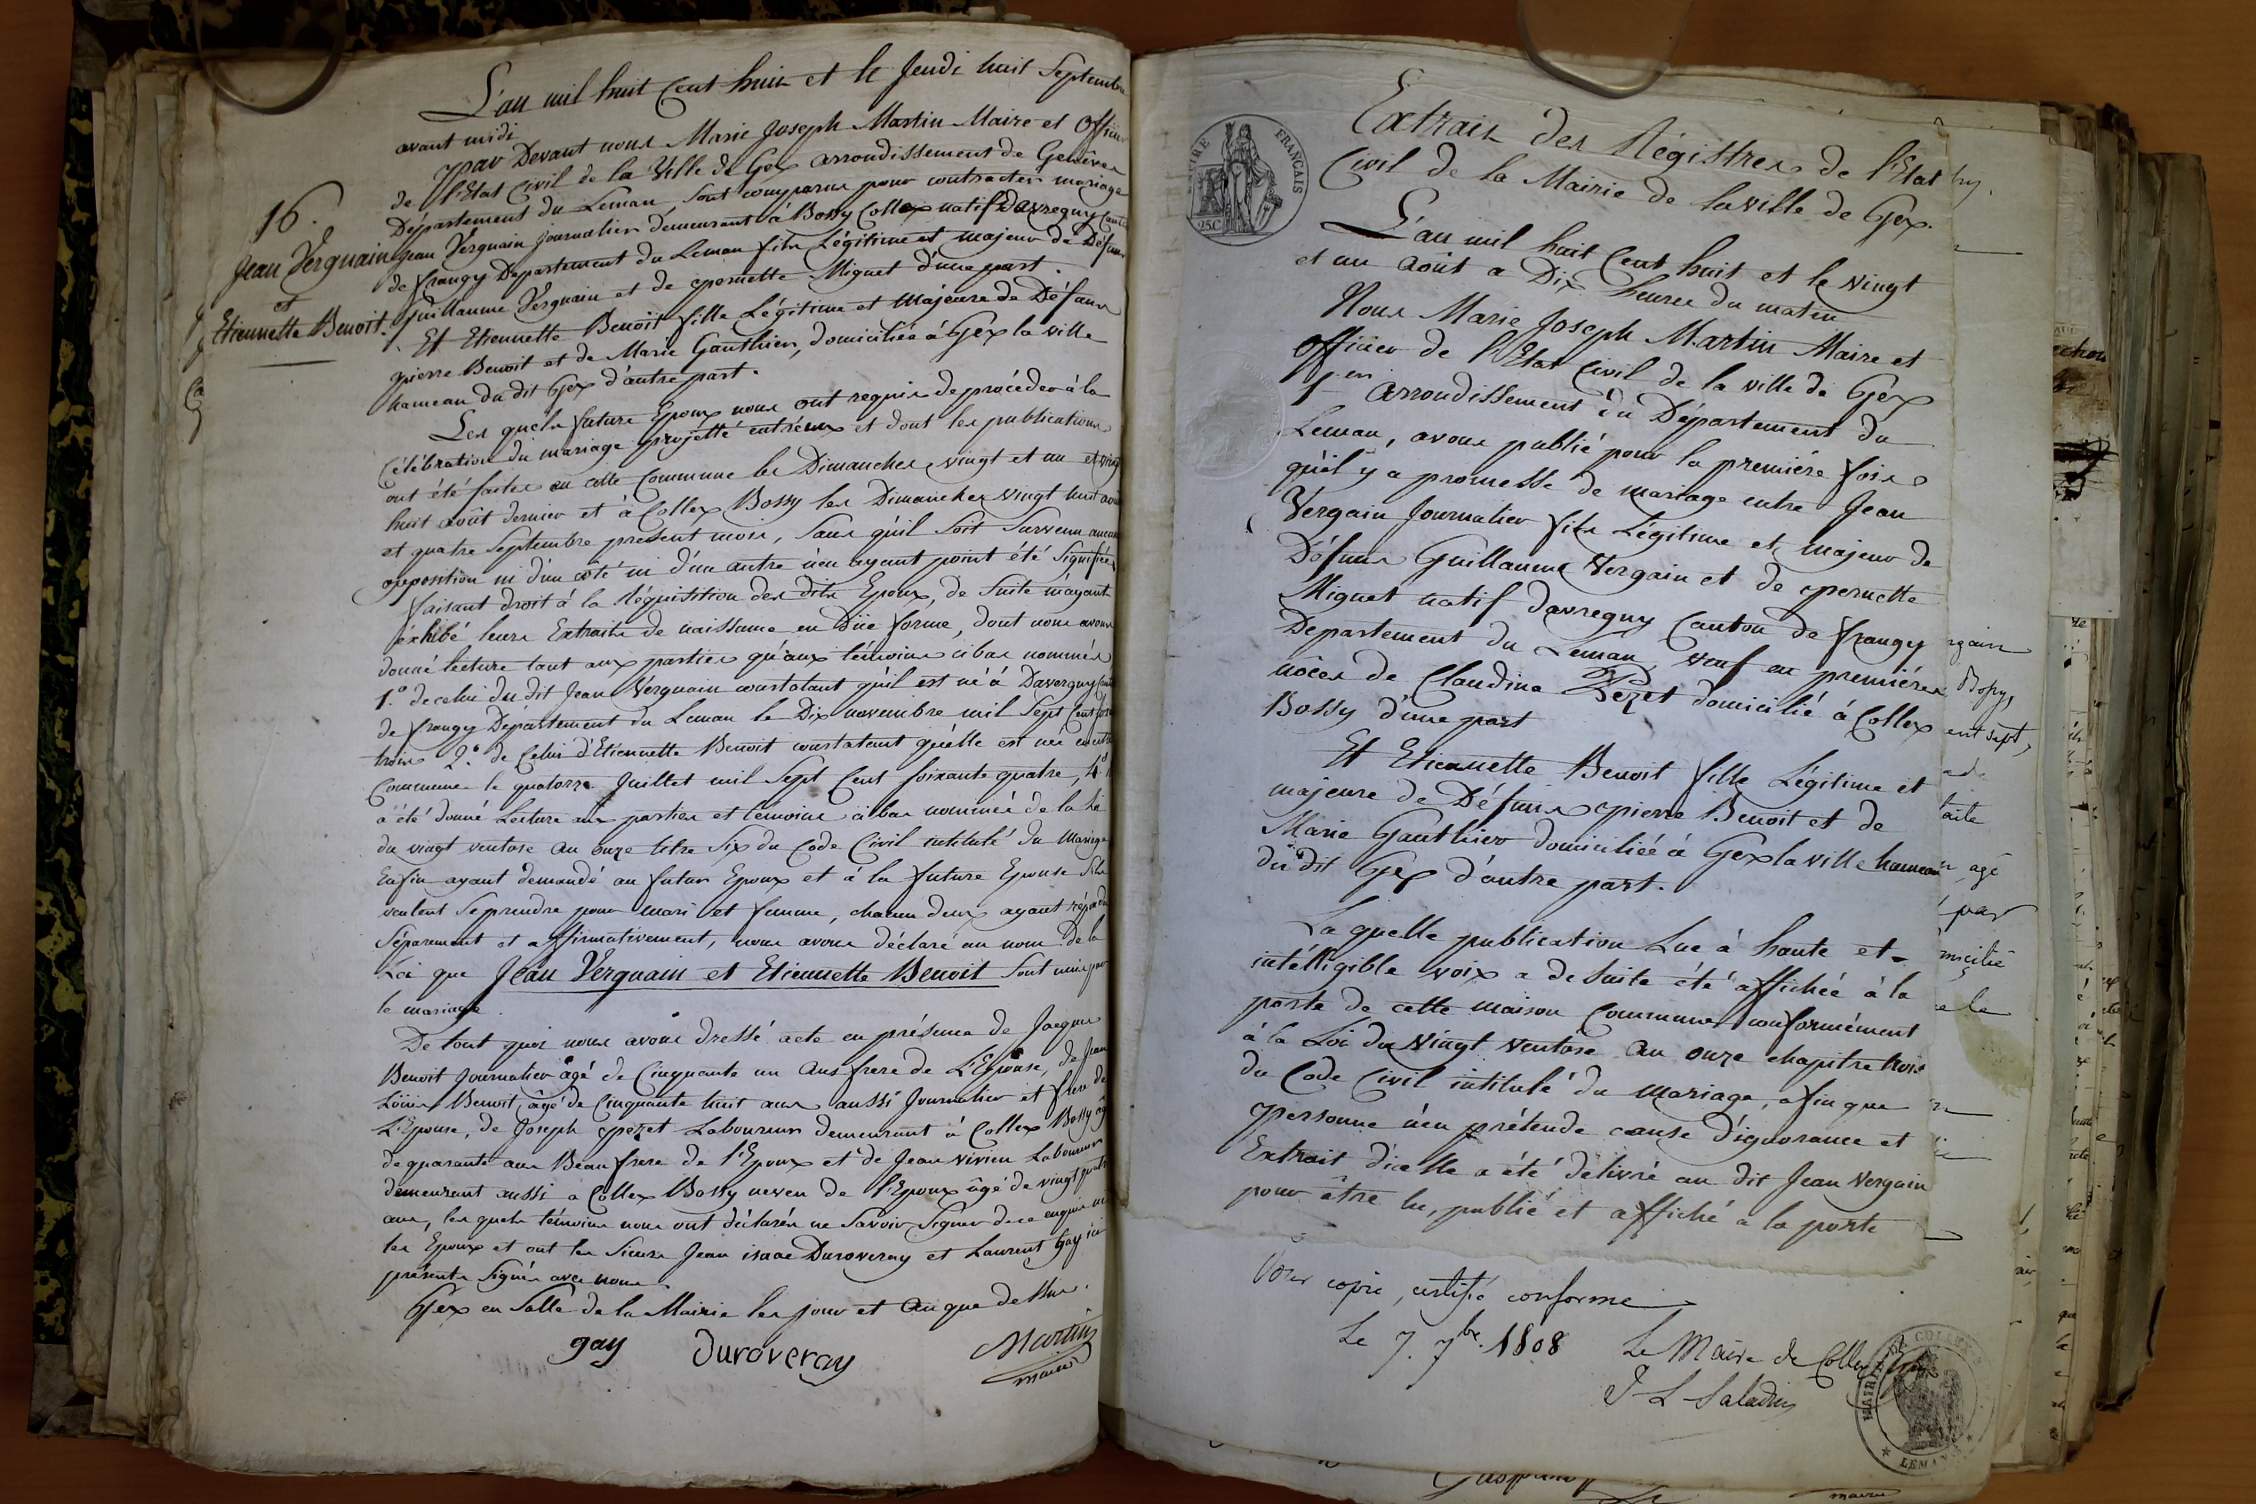 L'an mil huit Cent huit et le Jeudi huit Septembre
avant midi
par Devant nous Marie Joseph Martin Maire et Officier
de l'Etat Civil de la Ville de Gex arrondissement de Genêve
Département du Leman, sont comparus pour contracter mariage
Jean Verguain journalier demeurant à Bossy Collex natif davregny Canton
de frangy Departement du Leman fils Légitime et majeur de Défunt
guillaume Verguain et de pernette Miguet d'une part.
Et Etiennette Benoit fille Légitime et Majeure de Défunt
pierre Benoit et de Marie Gauthier, domiciliée à Gex la ville
hameau du dit Gex d'autre part.
16.
Jean Verguain
et
Etiennette Benoit.
Les quels futurs Epoux nous ont requis de procéder à la
Célébration du mariage projetté entréeux et dont les publications
ont été faites en cette Commune les Dimanches vingt et un et vingt
huit août dernier et à Collex Bossy les Dimanches vingt huit août
et quatre Septembre présent mois, Sans qu'il Soit Survenu aucune
opposition ni d'un côté ni d'un autre n'en ayant point été Signifiée
faisant droit à la Réquisition des dits Epoux, de Suite m'ayant
éxhibé leurs Extraits de naissance en Düe forme, dont nous avons
donné lecture tant aux parties qu'aux témoins cibas nommés
1.º de celui du dit Jean Verguain constatant qu'il est né à Davergny Canton
de frangy Département du Leman le Dix novembre mil Sept Cent
trois 2.º de Celui d'Etiennette Benoit constatant quélle est née en cette
Commune le quatorze Juillet mil Sept Cent soixante quatre,
à été donné Lecture aux parties et témoins cibas nommés de la loi
du vingt ventose an onze titre Six du Code Civil intitulé du Mariage
Enfin ayant demandé au futur Epoux et à la future Epouse S'ils
veulent Se prendre pour mari et femme, chacun deux ayant répondu
Séparement et affirmativement, nous avons déclaré au nom De la
Loi que Jean Verguain et Etiennette Benoit Sont unis par
le mariage.
De tout quoi nous avons dressé acte en présence de Jacques
Benoit Journalier âgé de Cinquante un Ans frere de L'Epouse, de Jean
Loüis Benoit, âgé de Cinquante huit ans aussi Journalier et frere de
L'Epouse, de Joseph pezet Laboureur demeurant à Collex Bossy âgé
de quarante ans Beau frere de l'Epoux et de Jean vivien Laboureur
demeurant aussi a Collex Bossy neveu de l'Epoux âgé de vingt quatre
ans, les quels témoins nous ont déclarés ne Savoir Signer de ce enquis
les Epoux et ont les Sieurs Jean isaac Duroveray et Laurent Gay ici
présents Signés avec nous
Gex en Salle de la Mairie les jour et An que dessus.
gay Duroveray Martin
maire
Extrait des Régistres de l'Etat
Civil de la Mairie de la ville de Gex.
FRANÇAIS
25C
L'an mil huit Cent huit et le vingt
et un Août a Dix heures du matin
Nous Marie Joseph Martin Maire et
Officier de l'Etat Civil de la ville de Gex
1.er arrondissement du Département du
Leman, avons publié pour la premiére fois
qu'il y a promesse de mariage entre Jean
Vergain Journalier fils Légitime et majeur de
Défunt Guillaume Vergain et de pernette
Miguet natif davregny Canton de frangy
Departement du Leman, veuf en premiéres
nôces de Claudine Pezet domicilié à Collex
Bossy d'une part
Et Etiennette Benoit fille Légitime et
majeure de Défunt pierre Benoit et de
Marie Gauthier domiciliée à Gex la ville hameau
du dit Gex d'autre part.
La quelle publication Lue à haute et
intélligible voix a de Suite été affichée à la
porte de cette maison Commune conformément
à la Loi du vingt ventose an onze chapitre trois
du Code Civil intitulé du Mariage, afin que
personne n'en prétende cause d'ignorance et
Extrait d'icelle a été délivré au dit Jean Vergain
pour être lu, publié et affiché a la porte
Pour copie, certifié conforme
Le 7. 7bre. 1808 Le Maire de Collex Bossy
J L Saladin
MAIRIE DE COLLEX
LEMAN
maire